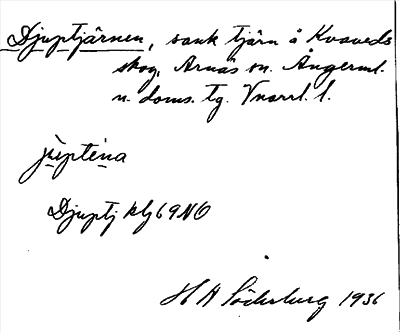 Djuptjärnen, sank tjärn å Kvaveds
skog, Arnäs sn. Ångerml.
n. doms. tg. Vnorrl. l.
jùptèna
Djuptj klj 69NO
H A Söderburg 1936